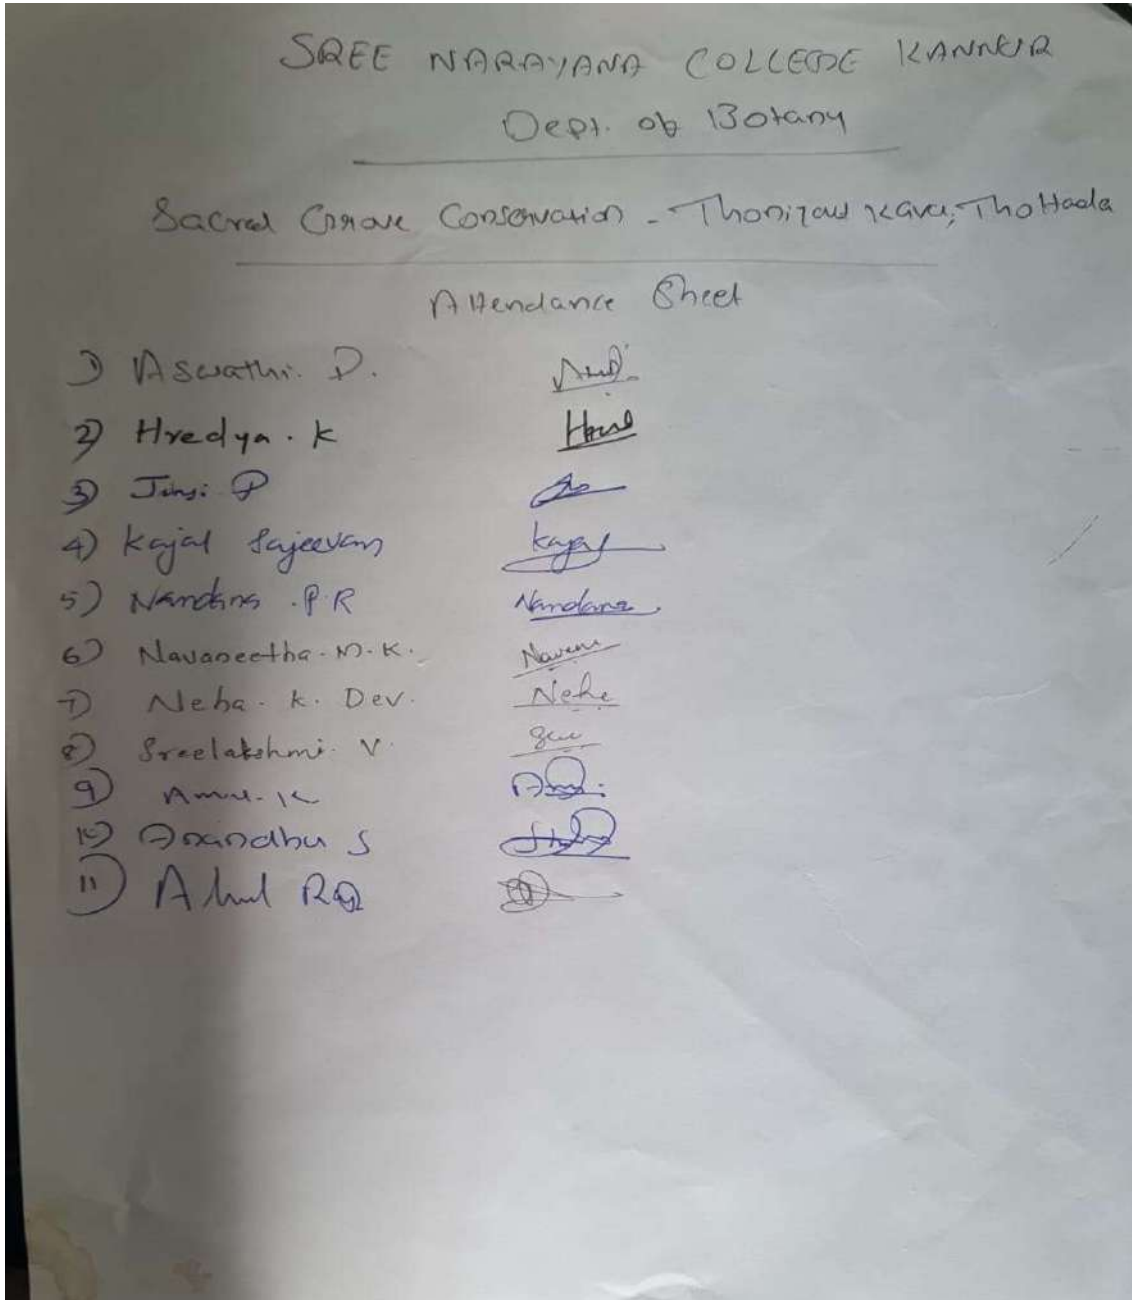 SREE NARAYANA COLLEGE KANNUR
Dept. of Botany
Sacred Grove Conservation - Kavu, Thottada
Attendance Sheet
1) Aswathi. P.
2) Hredya. K
3) Jinsi P
4) Kajal Sajeevan Kajal
5) Nandana .P.R Nandana
6) Navaneetha. M. K.
7) Neha. K. Dev. Neha
8) Sreelakshmi. V. Sree
9) Amal. K
10) Anandhu S
11) Atul Raj